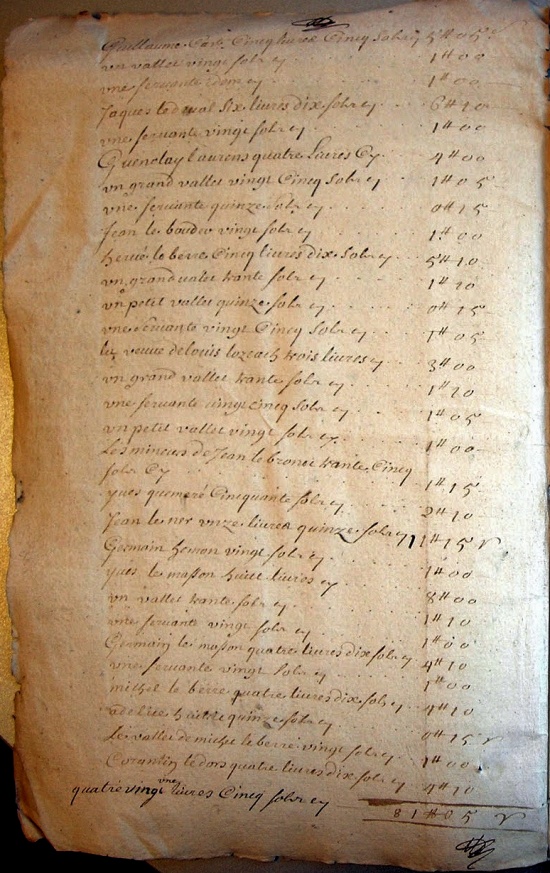 Guillaume Cariou Cinq livres Cinq Solz cy 5# 05s
vn vallet vingt solz cy 1# 00
vne servante idem cy 1# 00
Jaques le dreval Six livres dix solz cy 6# 10
vne servante vingt solz cy 1# 00
Guenolay laurens quatre livres Cy 4# 00
vn grand vallet vingt Cinq Solz cy 1# 05
vne servante quinze solz cy 0# 15
Jean le baudour vingt solz cy 1# 00
hervé le berre Cinq livres dix Solz cy 5# 10
vn grand valet trante solz cy 1# 10
vn petit vallet quinze solz cy 0# 15
vne servante vingt Cinq Solz cy 1# 05
la veuve de louis lozeach trois livres cy 3# 00
vn grand vallet trante solz cy 1# 10
vne servante vingt cinq Solz cy 1# 05
vn petit vallet vingt solz cy 1# 00
Les mineurs de Jean le bronec trante Cinq
solz Cy 1# 15
yves quemeré Cinquante solz cy 2# 10
Jean le ner vnze livres quinze solz cy 11# 15
Germain hemon vingt solz cy 1# 00
yves le masson huict livres cy 8# 00
vn vallet trante solz cy 1# 10
vne servante vingt solz cy 1# 00
Germain le masson quatre livres dix solz cy 4# 10
vne servante vingt solz cy 1# 00
michel le berre quatre livres dix solz cy 4# 10
quinze solz cy 0# 15
Le vallet de michel le berre vingt solz cy 1# 00
Corantin le dors quatre livres dix solz cy 4# 10
quatre vingt vne livres Cinq solz cy 81# 05